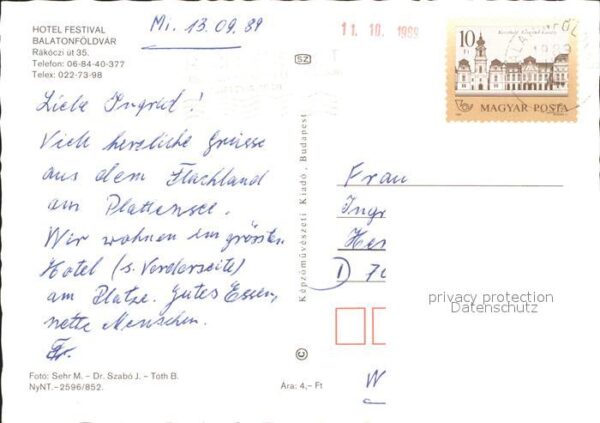 HOTEL FESTIVAL
BALATONFÖLDVÁR
Rákóczi út 35.
Telefon: 06-84-40-377
Telex: 022-73-98
Mi. 13.09.89
11. 10. 1989
SZ
10 Ft
MAGYAR POSTA
Liebe Ingrid!
Viele herzliche Grüsse
aus dem Flachland
am Plattensee.
Wir wohnen im grössten
Hotel (s. Vorderseite)
am Platze. Gutes Essen,
nette Menschen.
Képzőművészeti Kiadó, Budapest
©
Frau
Ingr
Her
D 70
W
privacy protection
Datenschutz
Fotó: Sehr M. – Dr. Szabó J. – Tóth B.
NyNT.–2596/852.
Ára: 4,– Ft